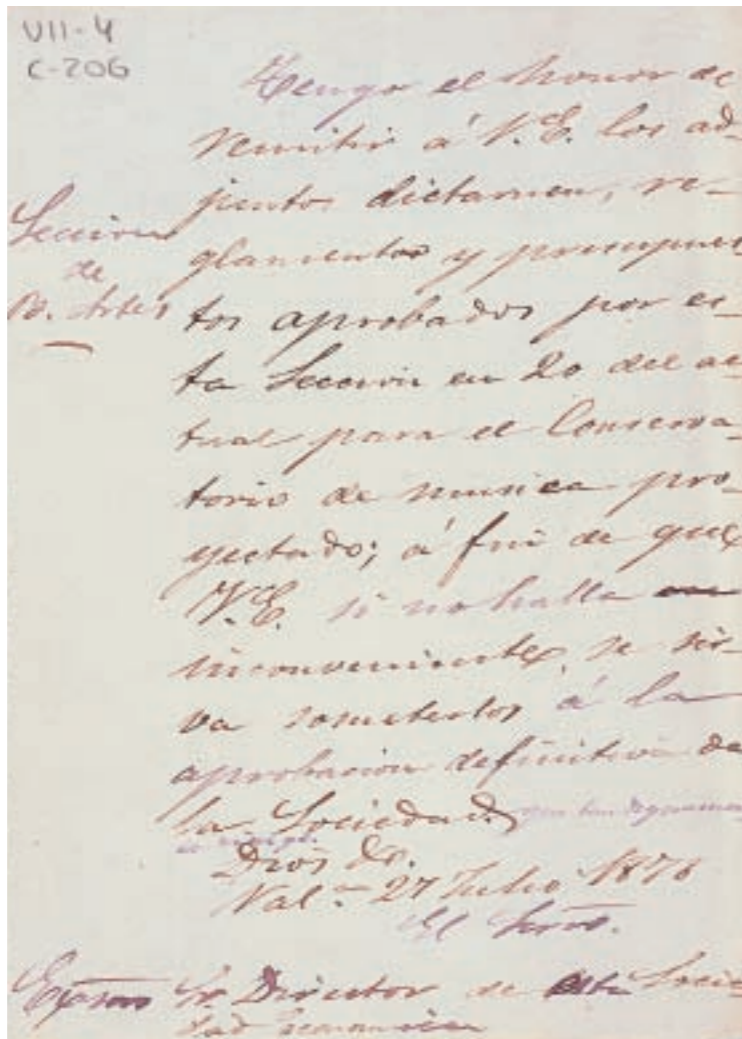 VII-4
C-206
Tengo el honor de
remitir á V.E. los ad-
juntos dictamen, re-
glamentos y presupues-
tos aprobados por es-
ta Seccion en 20 del ac-
tual para el Conserva-
torio de musica pro-
yectado; á fin de que
V.E. si no halla
inconveniente, se sir-
va someterlos á la
aprobacion definitiva de
la Sociedad
Dios &.
Val.ª 27 Julio 1876
El Srio.
Seccion
de
B. Artes
Excmo Sr Director de esta Socie-
dad Economica